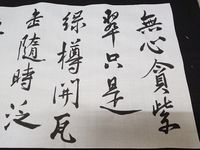 無心貪紫
翠只是
綠樽開瓦
走隨時泛